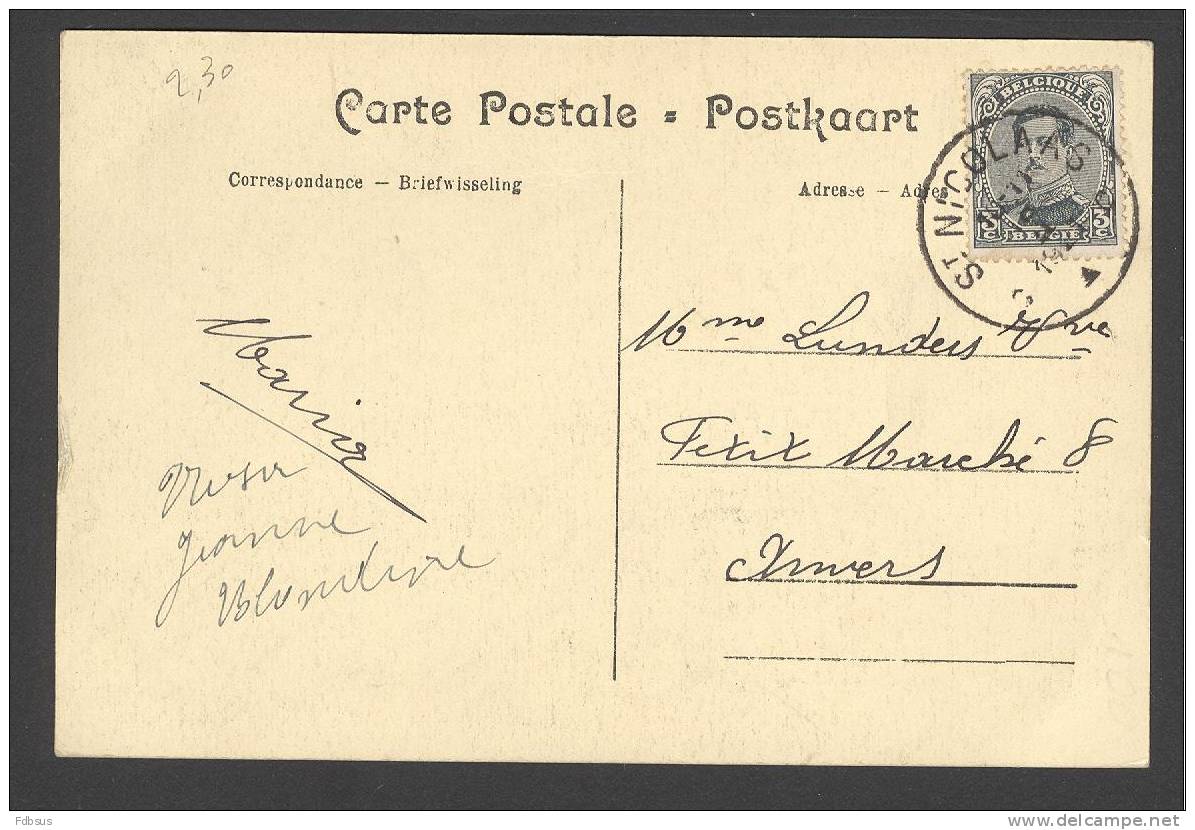 2,30
Carte Postale = Postkaart
Correspondance — Briefwisseling
Adresse — Adres
BELGIQUE
3 C 3 C
BELGIË
ST NICOLAAS
Mme Lunders Vve
Petit Marché 8
Anvers
Maria
Rosa
Jeanne
Blondine
Fdbsus
www.delcampe.net